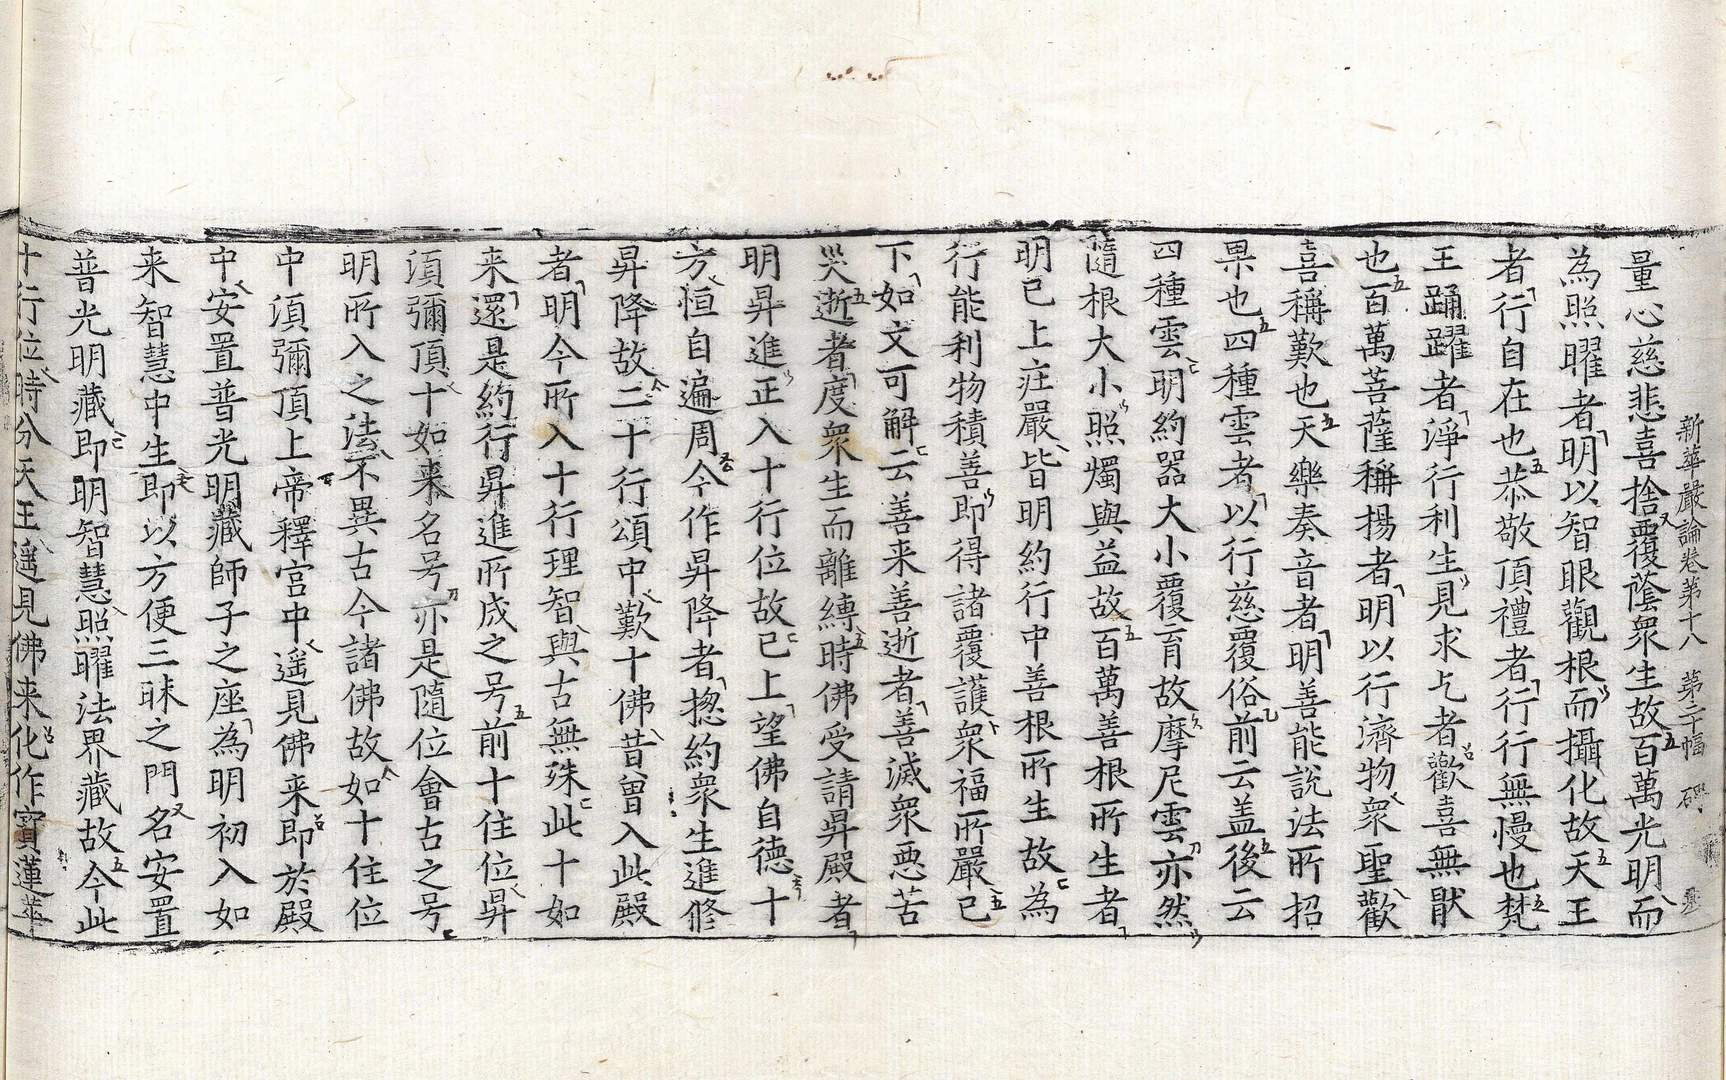 新華嚴論卷第十八　第二十幅
量心慈悲喜捨覆蔭衆生故百萬光明而
為照曜者明以智眼觀根而攝化故天王
者行自在也恭敬頂禮者行行無慢也梵
王踊躍者淨行利生見求乞者歡喜無猒
也百萬菩薩稱揚者明以行濟物衆聖歡
喜稱歎也天樂奏音者明善能說法所招
果也四種雲者以行慈覆俗前云盖後云
四種雲明約器大小覆育故摩尼雲亦然
隨根大小照燭與益故百萬善根所生者
明已上莊嚴皆明約行中善根所生故為
行能利物積善即得諸覆護衆福所嚴已
下如文可解云善来善逝者善滅衆恶苦
㘽逝者度衆生而離縛時佛受請昇殿者
明昇進正入十行位故已上望佛自德十
方恒自遍周今作昇降者揔約衆生進修
昇降故二十行頌中歎十佛昔曾入此殿
者明今所入十行理智與古無殊此十如
来還是約行昇進所成之号前十住位昇
須彌頂十如来名号亦是隨位會古之号
明所入之法不異古今諸佛故如十住位
中須彌頂上帝釋宫中遥見佛来即於殿
中安置普光明藏師子之座為明初入如
来智慧中生即以方便三昧之門名安置
普光明藏即明智慧照曜法界藏故今此
十行位時分天王遥見佛来化作寳蓮華